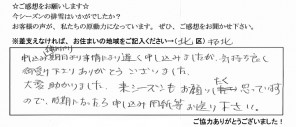 ☆ご感想をお願いします☆
今シーズンの排雪はいかがでしたか?
お客様の声が、私たちの原動力になっています。ぜひ、ご感想をお聞かせ下さい。
※差支えなければ、お住まいの地域をご記入ください→(北 区)
申込み期日より事情により遅く申し込みましたが、気持ち良く
御受け下さりありがとうございました。
大変助かりました。来シーズンもお願いしたく思っています
ので、時期になったら申込み用紙等お送り下さい。
ご協力ありがとうございました!